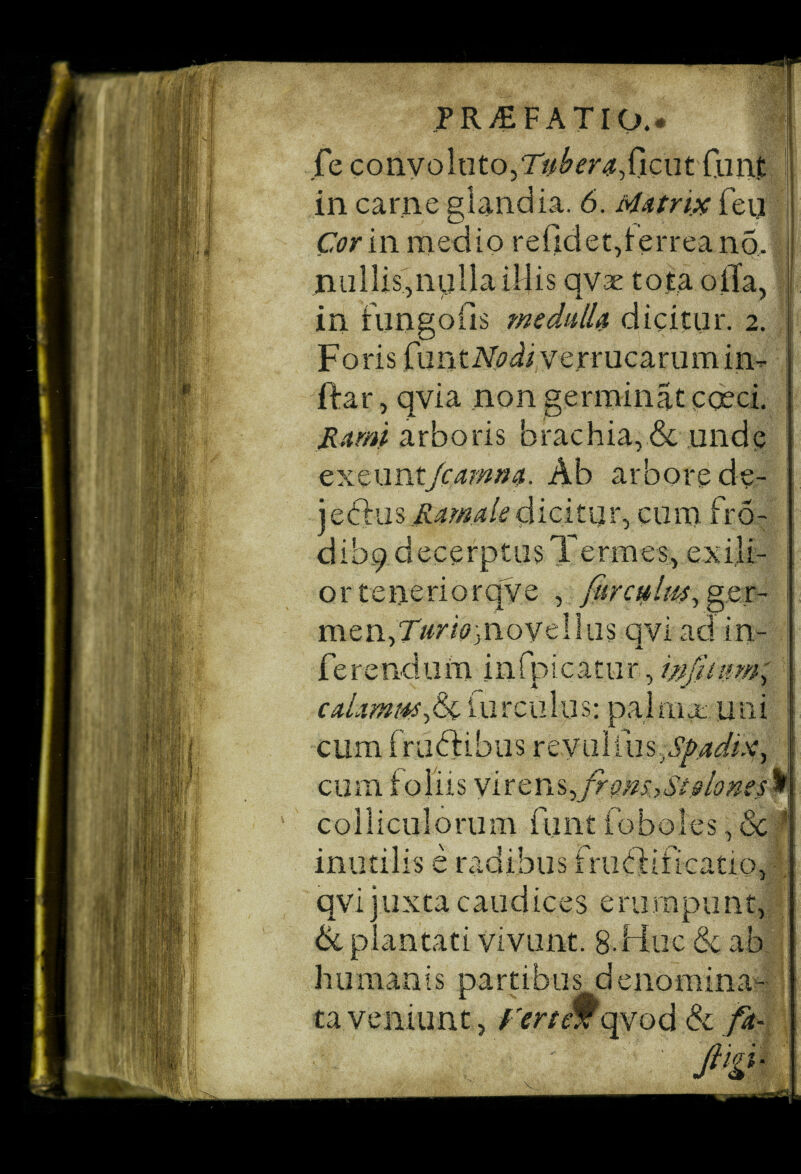 PRÆFATIO.
ſe convoluto, Tubera, ſicut ſunt
in carne glandia. 6. Matrix ſeu
Cor in medio reſidet, ferrea nō.
nullis, nulla illis qvæ tota oſſa,
in fungoſis medulla dicitur. 2.
Foris ſunt Nodi verrucarum in-
ſtar, qvia non germināt cœci.
Rami arboris brachia, & unde
exeunt ſcamna. Ab arbore de-
jectus Ramale dicitur, cum frō-
dibꝯ decerptus Termes, exili-
or teneriorqve, ſurculus, ger-
men, Turio; novellus qvi ad in-
ferendum inſpicatur, inſitum,
calamus, & ſurculus: palmæ uni
cum fructibus revulſus, Spadix,
cum foliis virens, frons, Stolones
colliculorum ſunt ſoboles, &
inutilis è radibus fructificatio,
qvi juxta caudices erumpunt,
& plantati vivunt. 8. Huc & ab
humanis partibus denomina-
ta veniunt, Vertex qvod & fa-
ſtigi-